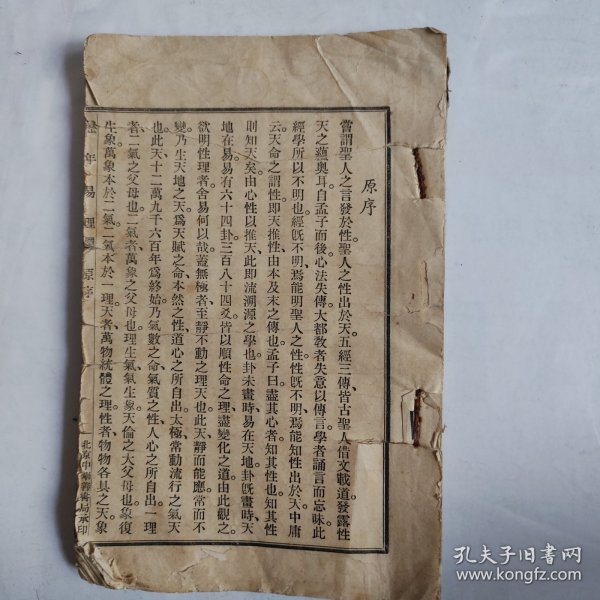 原序
嘗謂聖人之言發於性。聖人之性出於天。五經三傳、皆古聖人借文載道發露性
天之蘊奥耳。自孟子而後、心法失傳。大都教者失意以傳言。學者誦言而忘味。此
經學所以不明也。經旣不明、焉能明聖人之性。性旣不明、焉能知性出於天。中庸
云。天命之謂性。即天推性、由本及末之傳也。孟子曰。盡其心者知其性也。知其性
則知天矣。由心性以推天、此即流溯源之學也。卦未畫時、易在天地。卦旣畫時、天
地在易。易有六十四卦、三百八十四爻。皆以順性命之理、盡變化之道。由此觀之。
欲明性理者、舍易何以哉。蓋無極者、至靜不動之理天也。此天靜而能應、常而不
變。乃生天地之天。爲天賦之命、本然之性、道心之所自出。太極、常動流行之氣天
也。此天十二萬九千六百年爲終始。乃氣數之命、氣質之性、人心之所自出。一理
者、二氣之父母也。二氣者、萬象之父母也。理生氣、氣生象、天倫之大父母也。象復
生象。萬象本於二氣。二氣本於一理。天者、萬物統體之理。性者、物物各具之天。象
年易理
原序
北京中
書局承印
孔夫子旧书网
www.kongfz.com